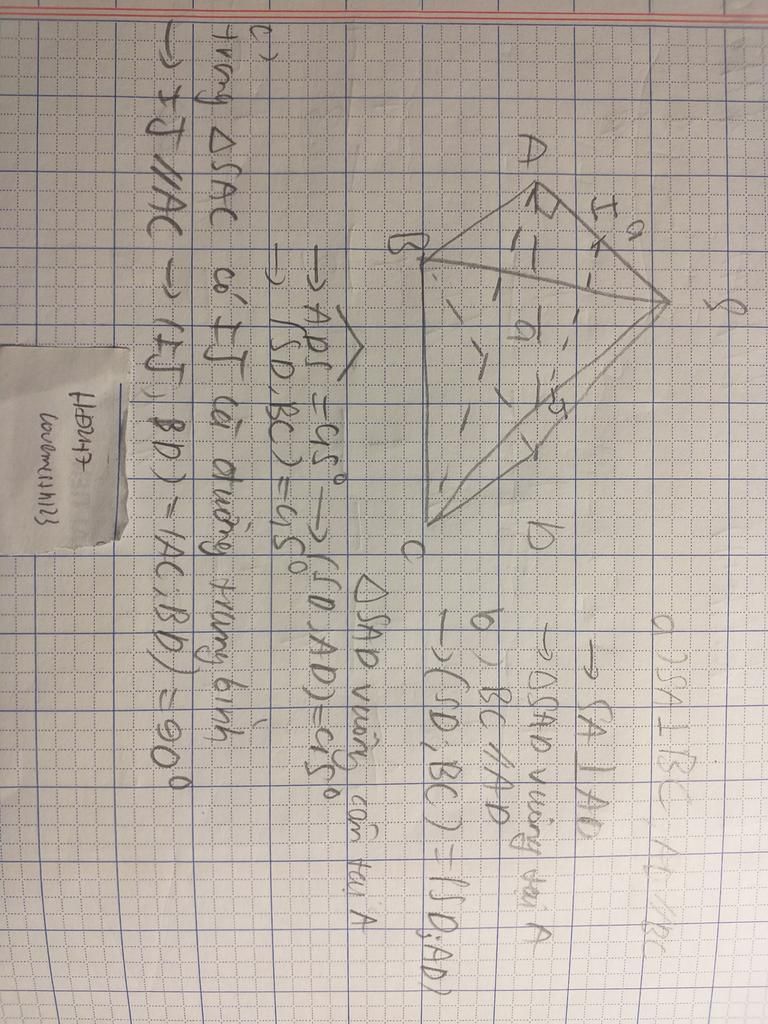 S
a
I
A
a
J
D
B
C
a) SA ⊥ BC, AD // BC
→ SA ⊥ AD
→ ΔSAD vuông tại A
b) BC // AD
→ (SD, BC) = (SD; AD)
ΔSAD vuông cân tại A
→ ADS = 45° → (SD, AD) = 45°
→ (SD, BC) = 45°
c)
trong ΔSAC có IJ là đường trung bình
→ IJ // AC → (IJ, BD) = (AC, BD) = 90°